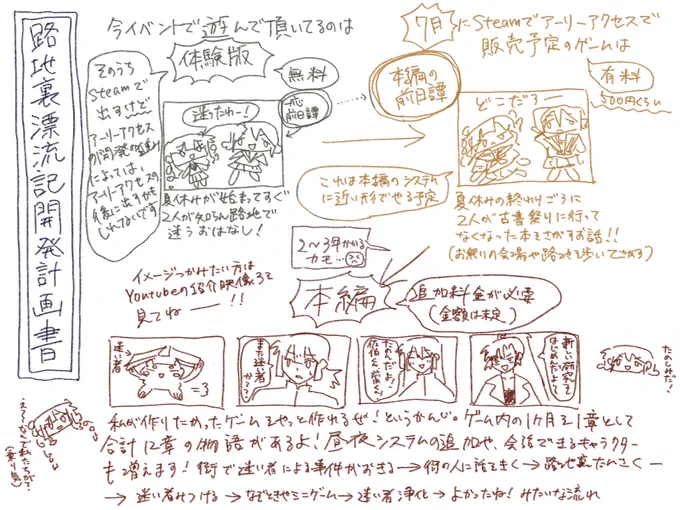 路地裏漂流記開発計画書
今イベントで遊んで頂いてるのは
体験版
無料
前日譚
そのうち
Steamで
出すけど
アーリーアクセス
の開発
によっては、
アーリーアクセスの
後に出すかも
しれないです
迷ったわー!
夏休みが始まってすぐ
2人が知らん路地で
迷うおはなし!
7月にSteamでアーリーアクセスで
販売予定のゲームは
本編の
前日譚
有料
500円くらい
どこだろー
これは本編のシステム
に近い形でやる予定
夏休みの終わりごろに
2人が古書祭りに行って
なくなった本をさがすお話!!
(お祭りの会場や路地を歩いてさがす)
2~3年かかる
カモ…
イメージつかみたい方は
Youtubeの紹介映像3を
見てねー!!
本編
追加料金が必要
(金額は未定)
迷い者→
=3
また迷い者
たのんだよ!
新しい
はじめたよて
たのしみだ!
私が作りたかったゲームをやっと作れるぜ!というかんじ。ゲーム内の1ヶ月を1章として
合計12章の物語があるよ!昼夜システムの追加や、会話できるキャラクター
も増えます!街で迷い者による事件がおきる→街の人に話をきく→路地裏たんさく
→迷い者みつける→なぞときやミニゲーム→迷い者浄化→よかったね!みたいな流れ